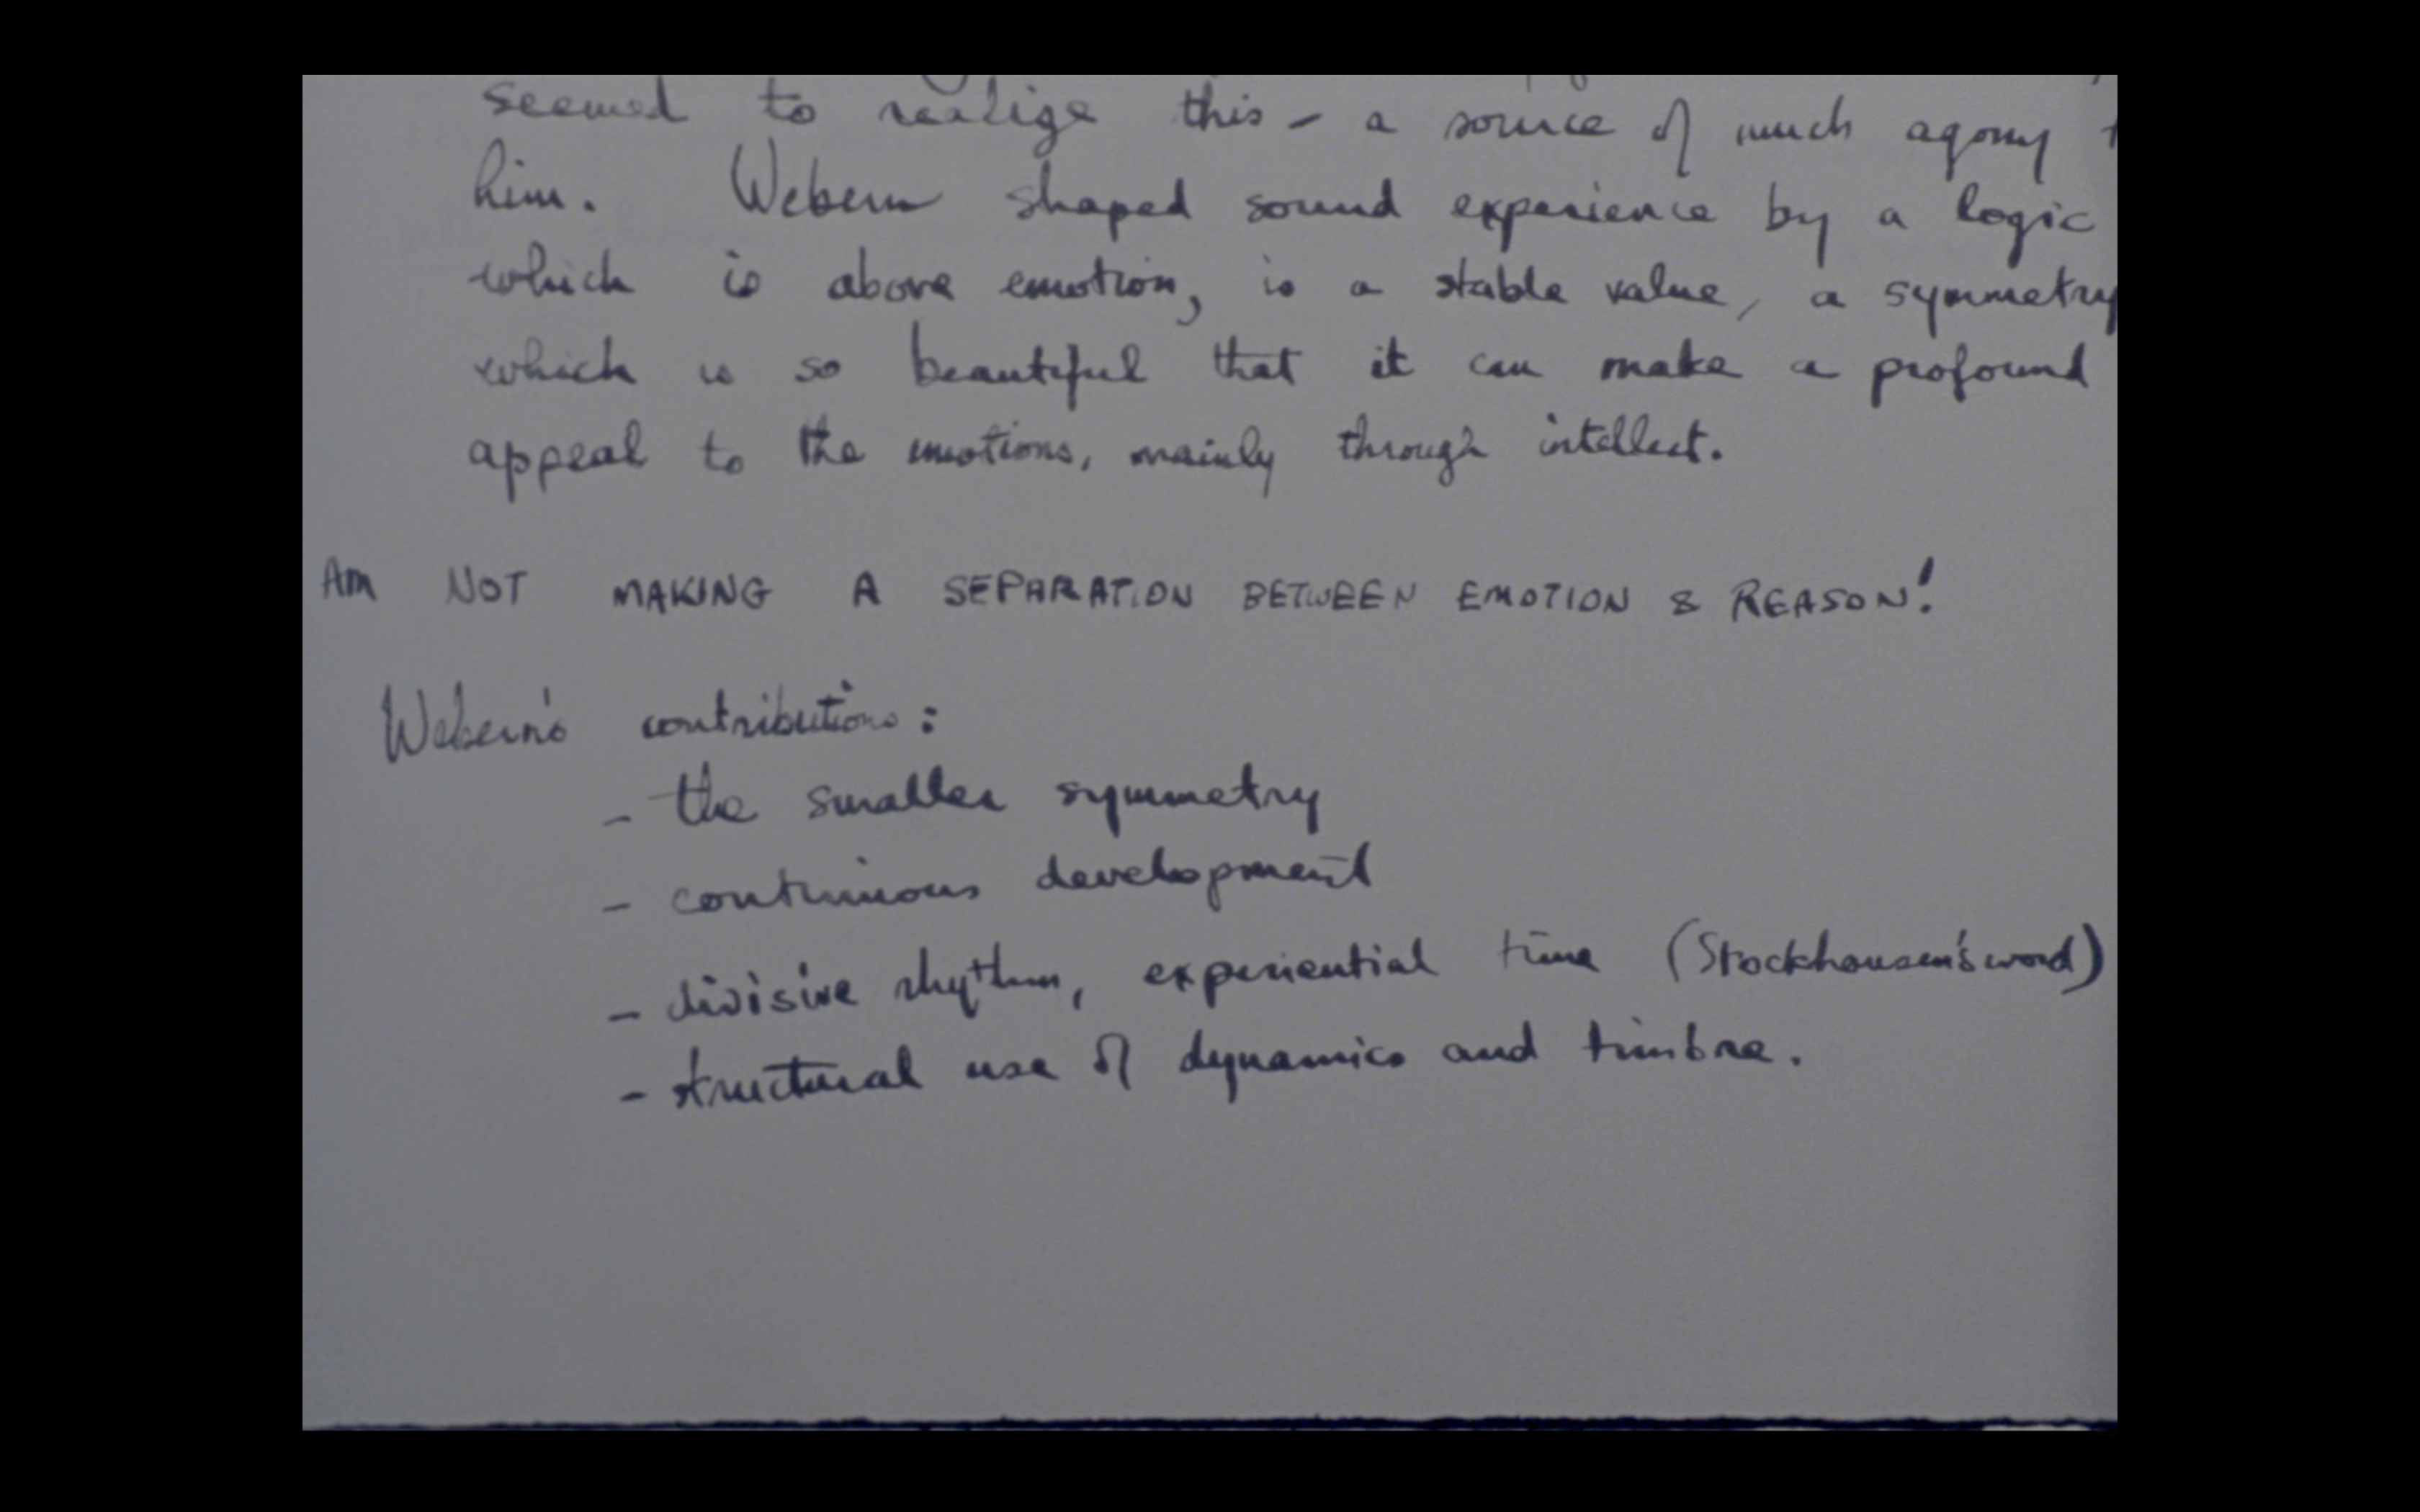 seemed to realize this - a source of much agony
him. Webern shaped sound experience by a logic
which is above emotion, is a stable value, a symmetry
which is so beautiful that it can make a profound
appeal to the emotions, mainly through intellect.
AM NOT MAKING A SEPARATION BETWEEN EMOTION & REASON!
Webern's contributions:
- the smaller symmetry
- continuous development
- divisive rhythm, experiential time (Stockhausen's word)
- structural use of dynamics and timbre.